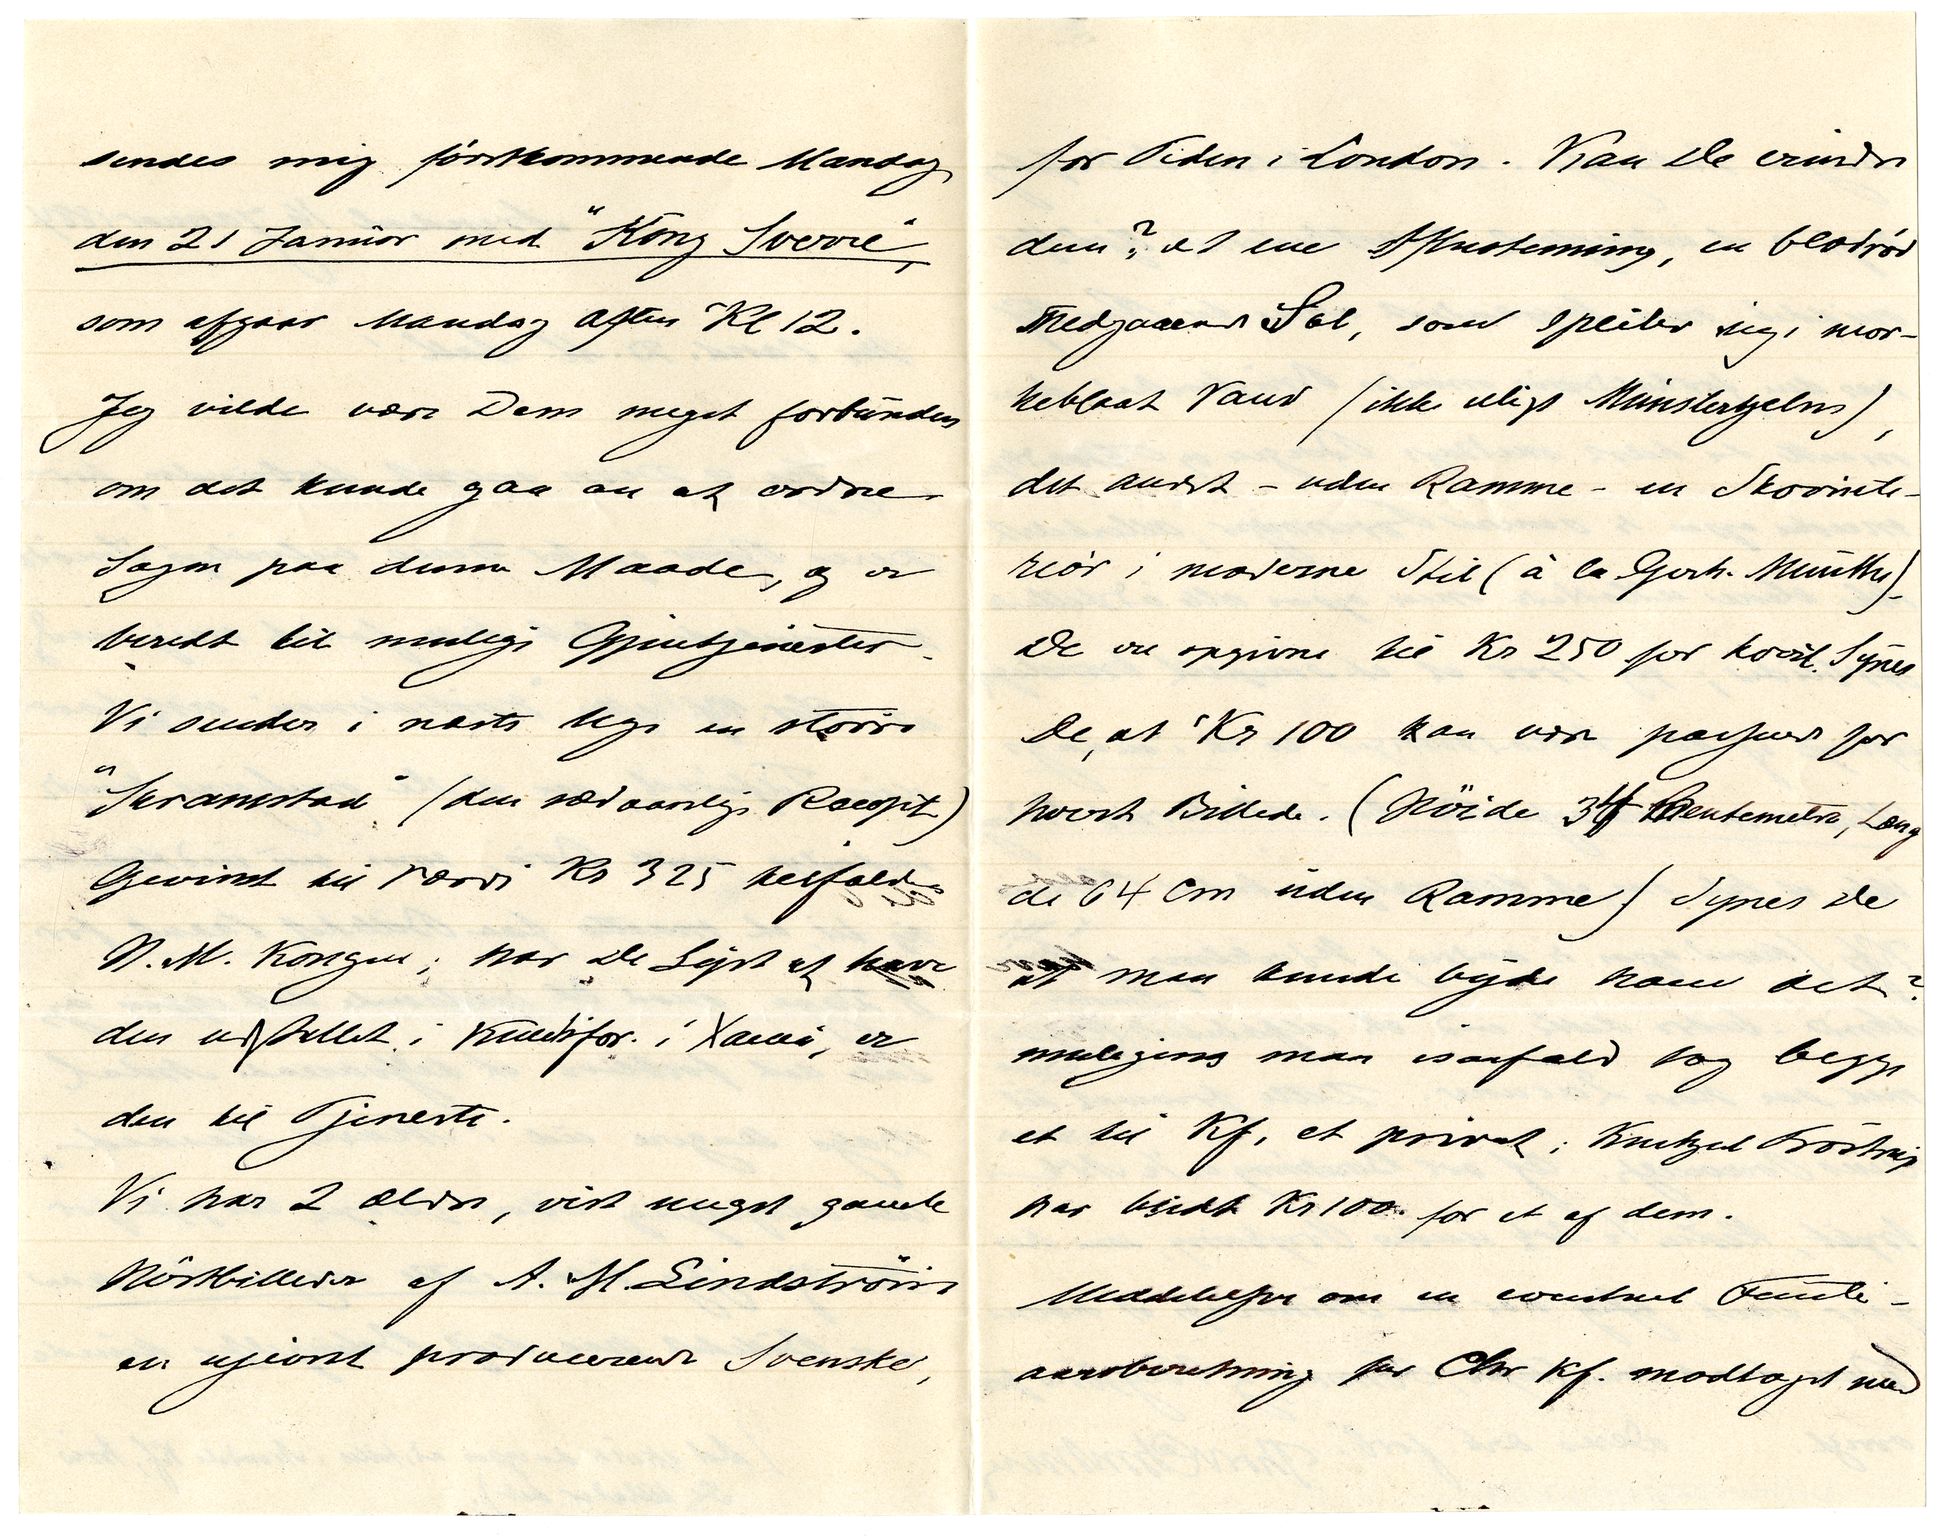 sendes mig förstkommende Mandag
den 21 Januar med "Kong Sverre",
som afgaar Mandag Aften Kl 12.
Jeg vilde være Dem meget forbunden
om det kunde gaa an at ordne
Sagen paa denne Maade, og er
beredt til mulige Gjentjenester.
Vi sender i næste Uge en större
"Skramstad" (den sædvanlige Recept)
Gevinst til Værdi Kr 325 tilfalden
H. M. Kongen; har De Lyst at have
den udstillet i Kunstfor. i Xania, er
den til Tjeneste.
Vi har 2 ældre, vist meget gamle
Höstbilleder af A. M. Lindström
en ujevnt producerende Svenske,
for Tiden i London. Kan De erindre
dem? det ene Aftenstemning, en blodröd
nedgaaende Sol, som speiler sig i mör-
keblaat Vand (ikke uligt Münsterhjelms),
det andet - uden Ramme - en Skovinte-
riör i moderne Stil (à la Gerh. Munthe).
De er opgivne til Kr 250 for hvert. Synes
De, at Kr 100 kan være passende for
hvert Billede. (Höide 34 Centemeter, Læng
de 64 Cm uden Ramme) Synes De
at man kunde byde ham det?
muligens man isaafald tog begge
et til Kf, et privat; Knetzel Tröstrup
har budt Kr 100 for et af dem.
Meddelelse om en eventuel
aarsberetning for Chr Kf. modtaget med